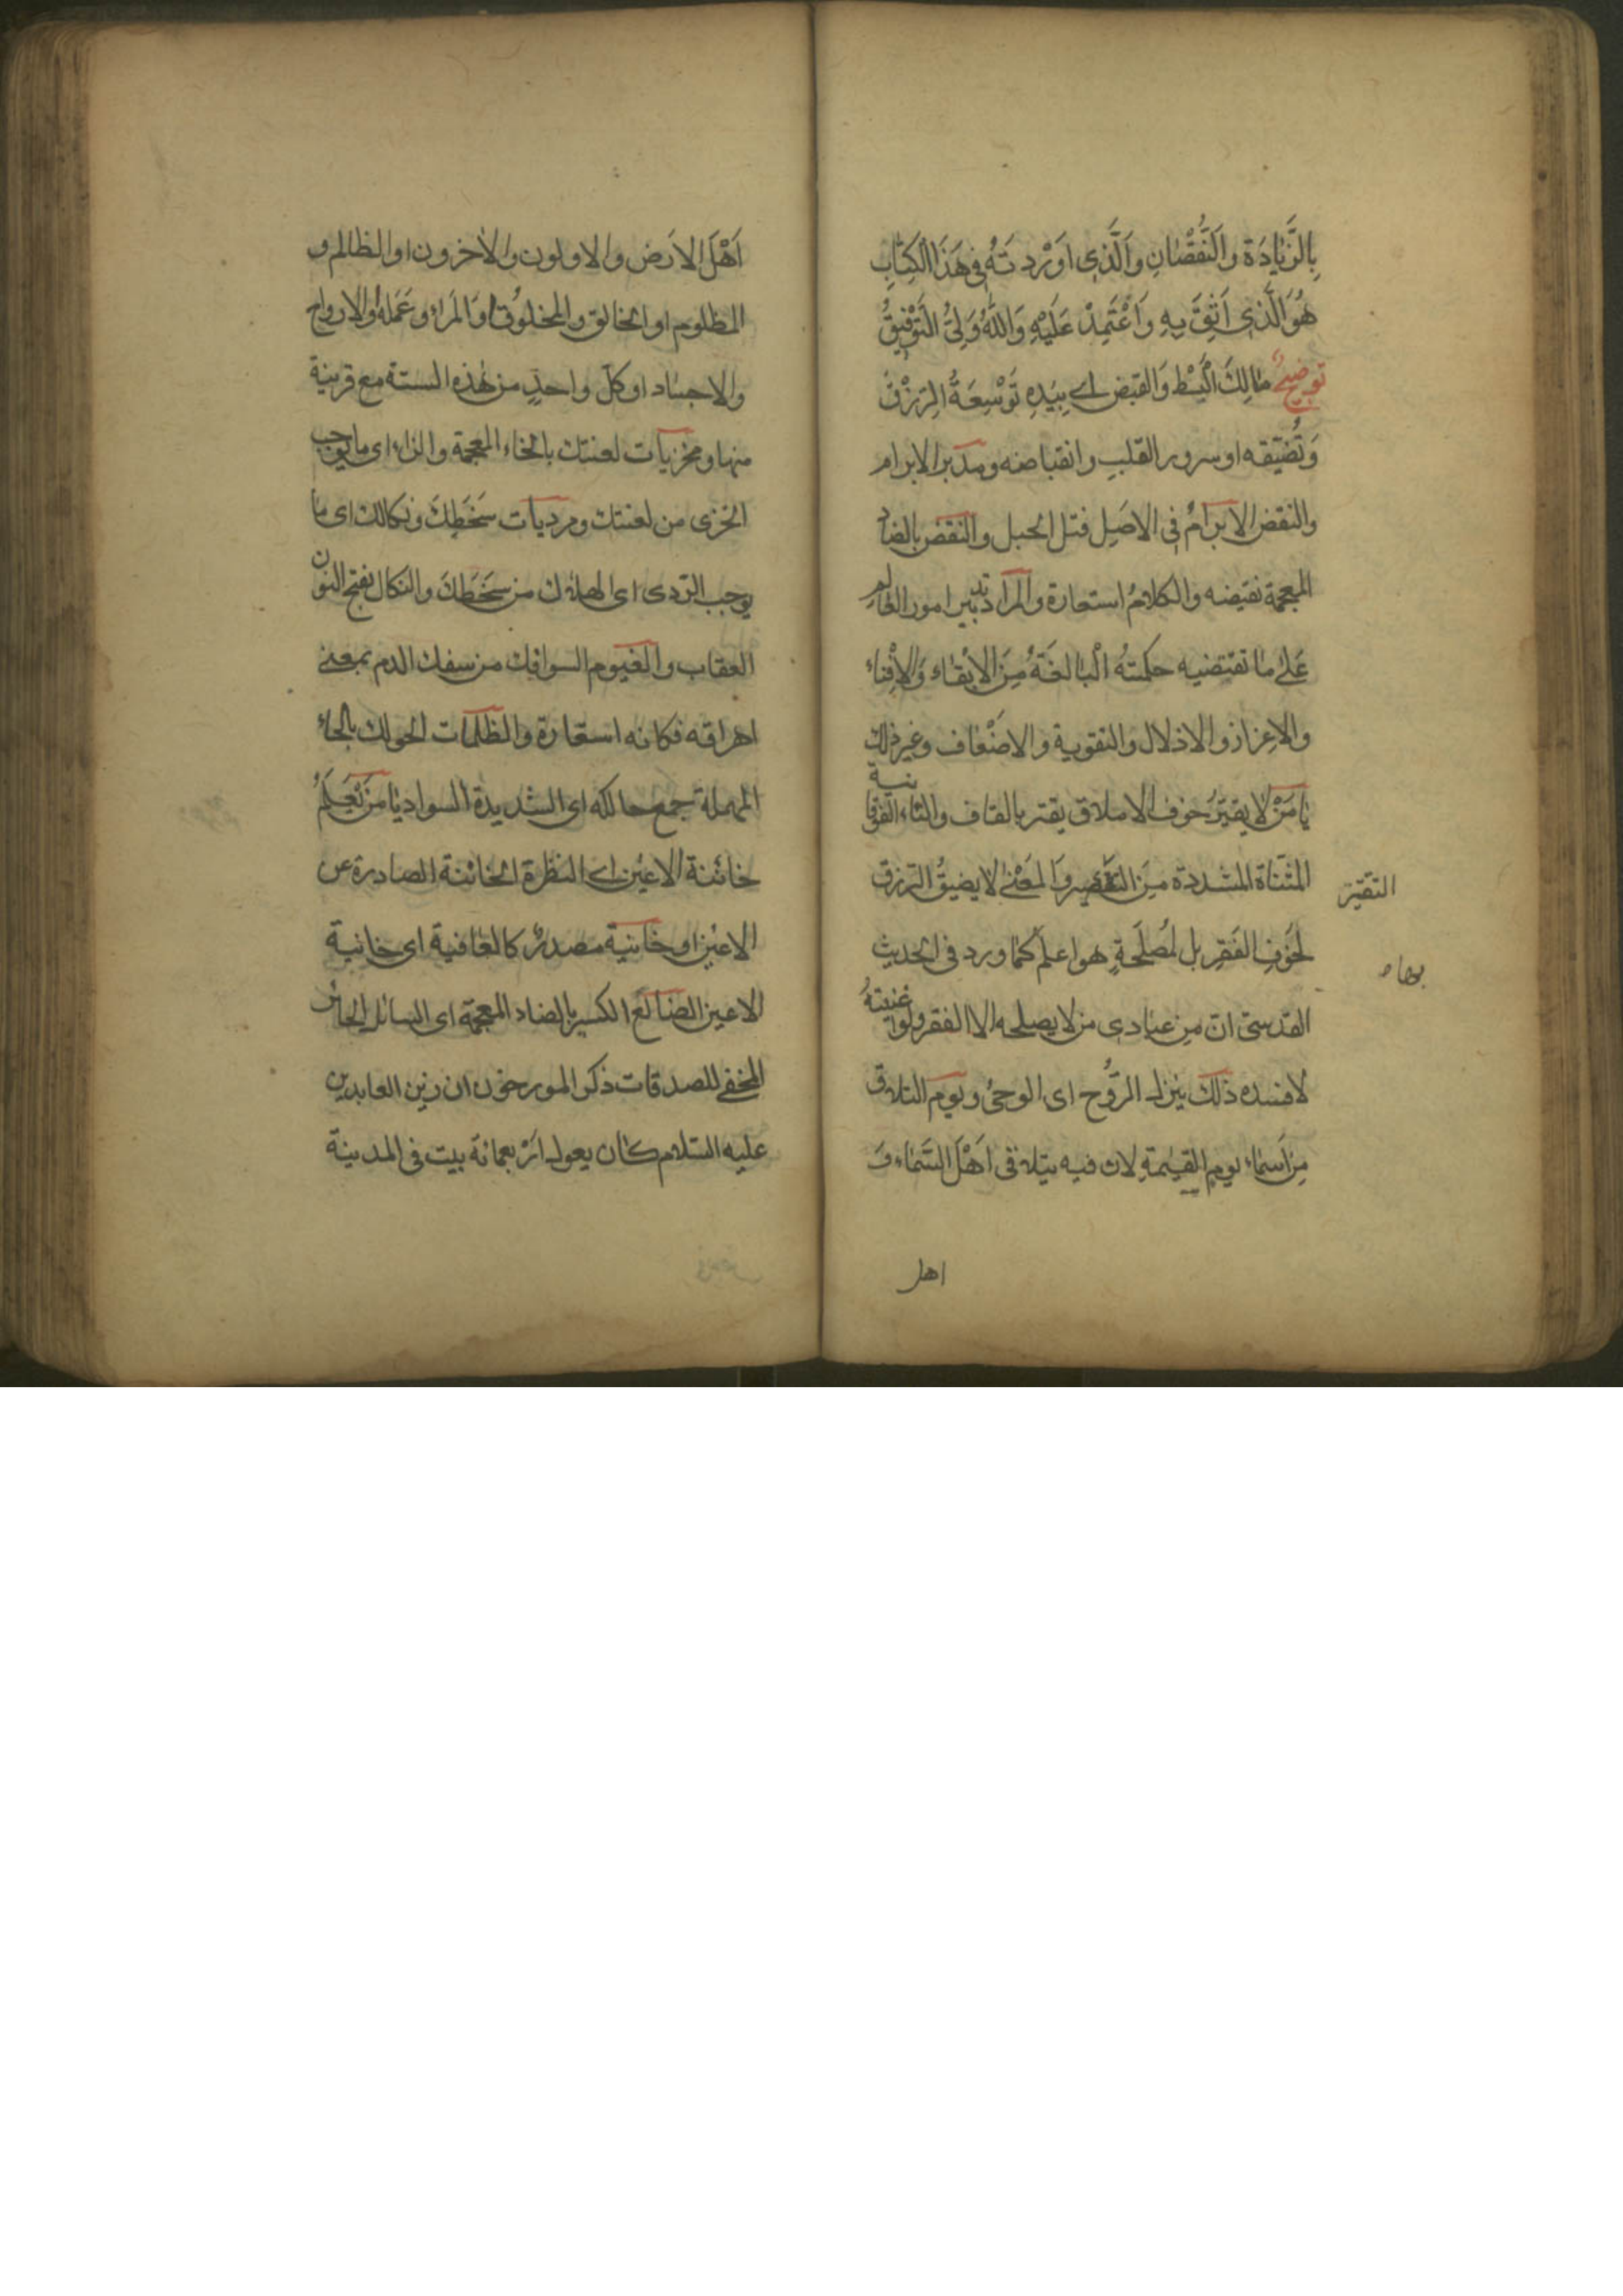 بِالزِّيَادَة والنُّقْصَانِ وَالَّذِى اَوْرَدتُهُ فِى هَذَا الْكِتَابِ
هُوَ الَّذِى اَثِقُ بِهِ وَاَعْتَمِدُ عَلَيْهِ وَاللهُ وَلِىُّ التَوْفِيقِ
توضيحٌ مالِكَ الْبَسْطِ وَالقبض اے بِيَدِهِ تَوْسِعَةُ الرِّزْقِ
وَتُضيّقه او سرور القلبِ وانقباضه ومدبر الابرام
والنقض الابرامُ فى الاصَلِ فتل الحبل والنقض بالضاد
المعجمة نقيضه والكلامُ استعارة والمراد تدبير امور العالم
عَلىٰ ما تقتضيه حكمتهُ الْبالغَةُ مِنَ الابْقاء وَالاِفناء
والاِعزاز والاذلال والتقوية والاضْعاف وغير ذلك
يا مَنْ لا يقتِّرُ خوف الاملاق يقتر بالقاف والتاء الفوقانية
المثناة المشددة مِنَ التقصير وَالمَعْنىٰ لا يضيقُ الرزق
لخَوفِ الفَقرِ بل لمُصلحَةٍ هو اعلم كما ورد فى الحديث
القدسىّ ان مِن عبادى من لا يصلحه الا الفقر ولو اغنيتهُ
لافسده ذلكَ ينزل الرّوُح اى الوحىُ ويوم التلاق
مِن اَسماء يومِ القيٰمةِ لان فيه يتلاقى اَهْلَ السَّماء وَ
التقتير
بهاه
اهل
اَهْلَ الاَرض والاولون والاٰخرون او الظالم و
المظلوم او الخالق والمخلوُق او المَراء وعَمَلهُ او الارواح
والاجساد او كلّ واحدٍ من هٰذه الستة مع قرينة
منها ومخزيات لعنتك بالخاء المعجمة والزاء اى ما يوجب
الخزى من لعنتك ومرديات سَخَطِكَ ونكالك اى ما
يوجب التردى اى الهلاك من سَخَطَكَ والنكال بفتح النون
العقاب والغيوم السوافك من سفك الدم بمعنے
اهراقه فكانه استعارة والظلمات الحوالك بالحاء
المهملة جمع حالكه اى الشديدة السواد يا من يَعْلَمُ
خائنة الاعيُن اے النظرة الخائنة الصادرة عن
الاعيُن او خاينية مصدرٌ كالعٰافية اى خانية
الاعين الصانع الكسير بالضاد المعجمة اى السائل الحائر
المخفے للصدقات ذكر المورخون ان زين العابدين
عليه السّلام كان يعول اَرْبعمائة بيت فى المدينة